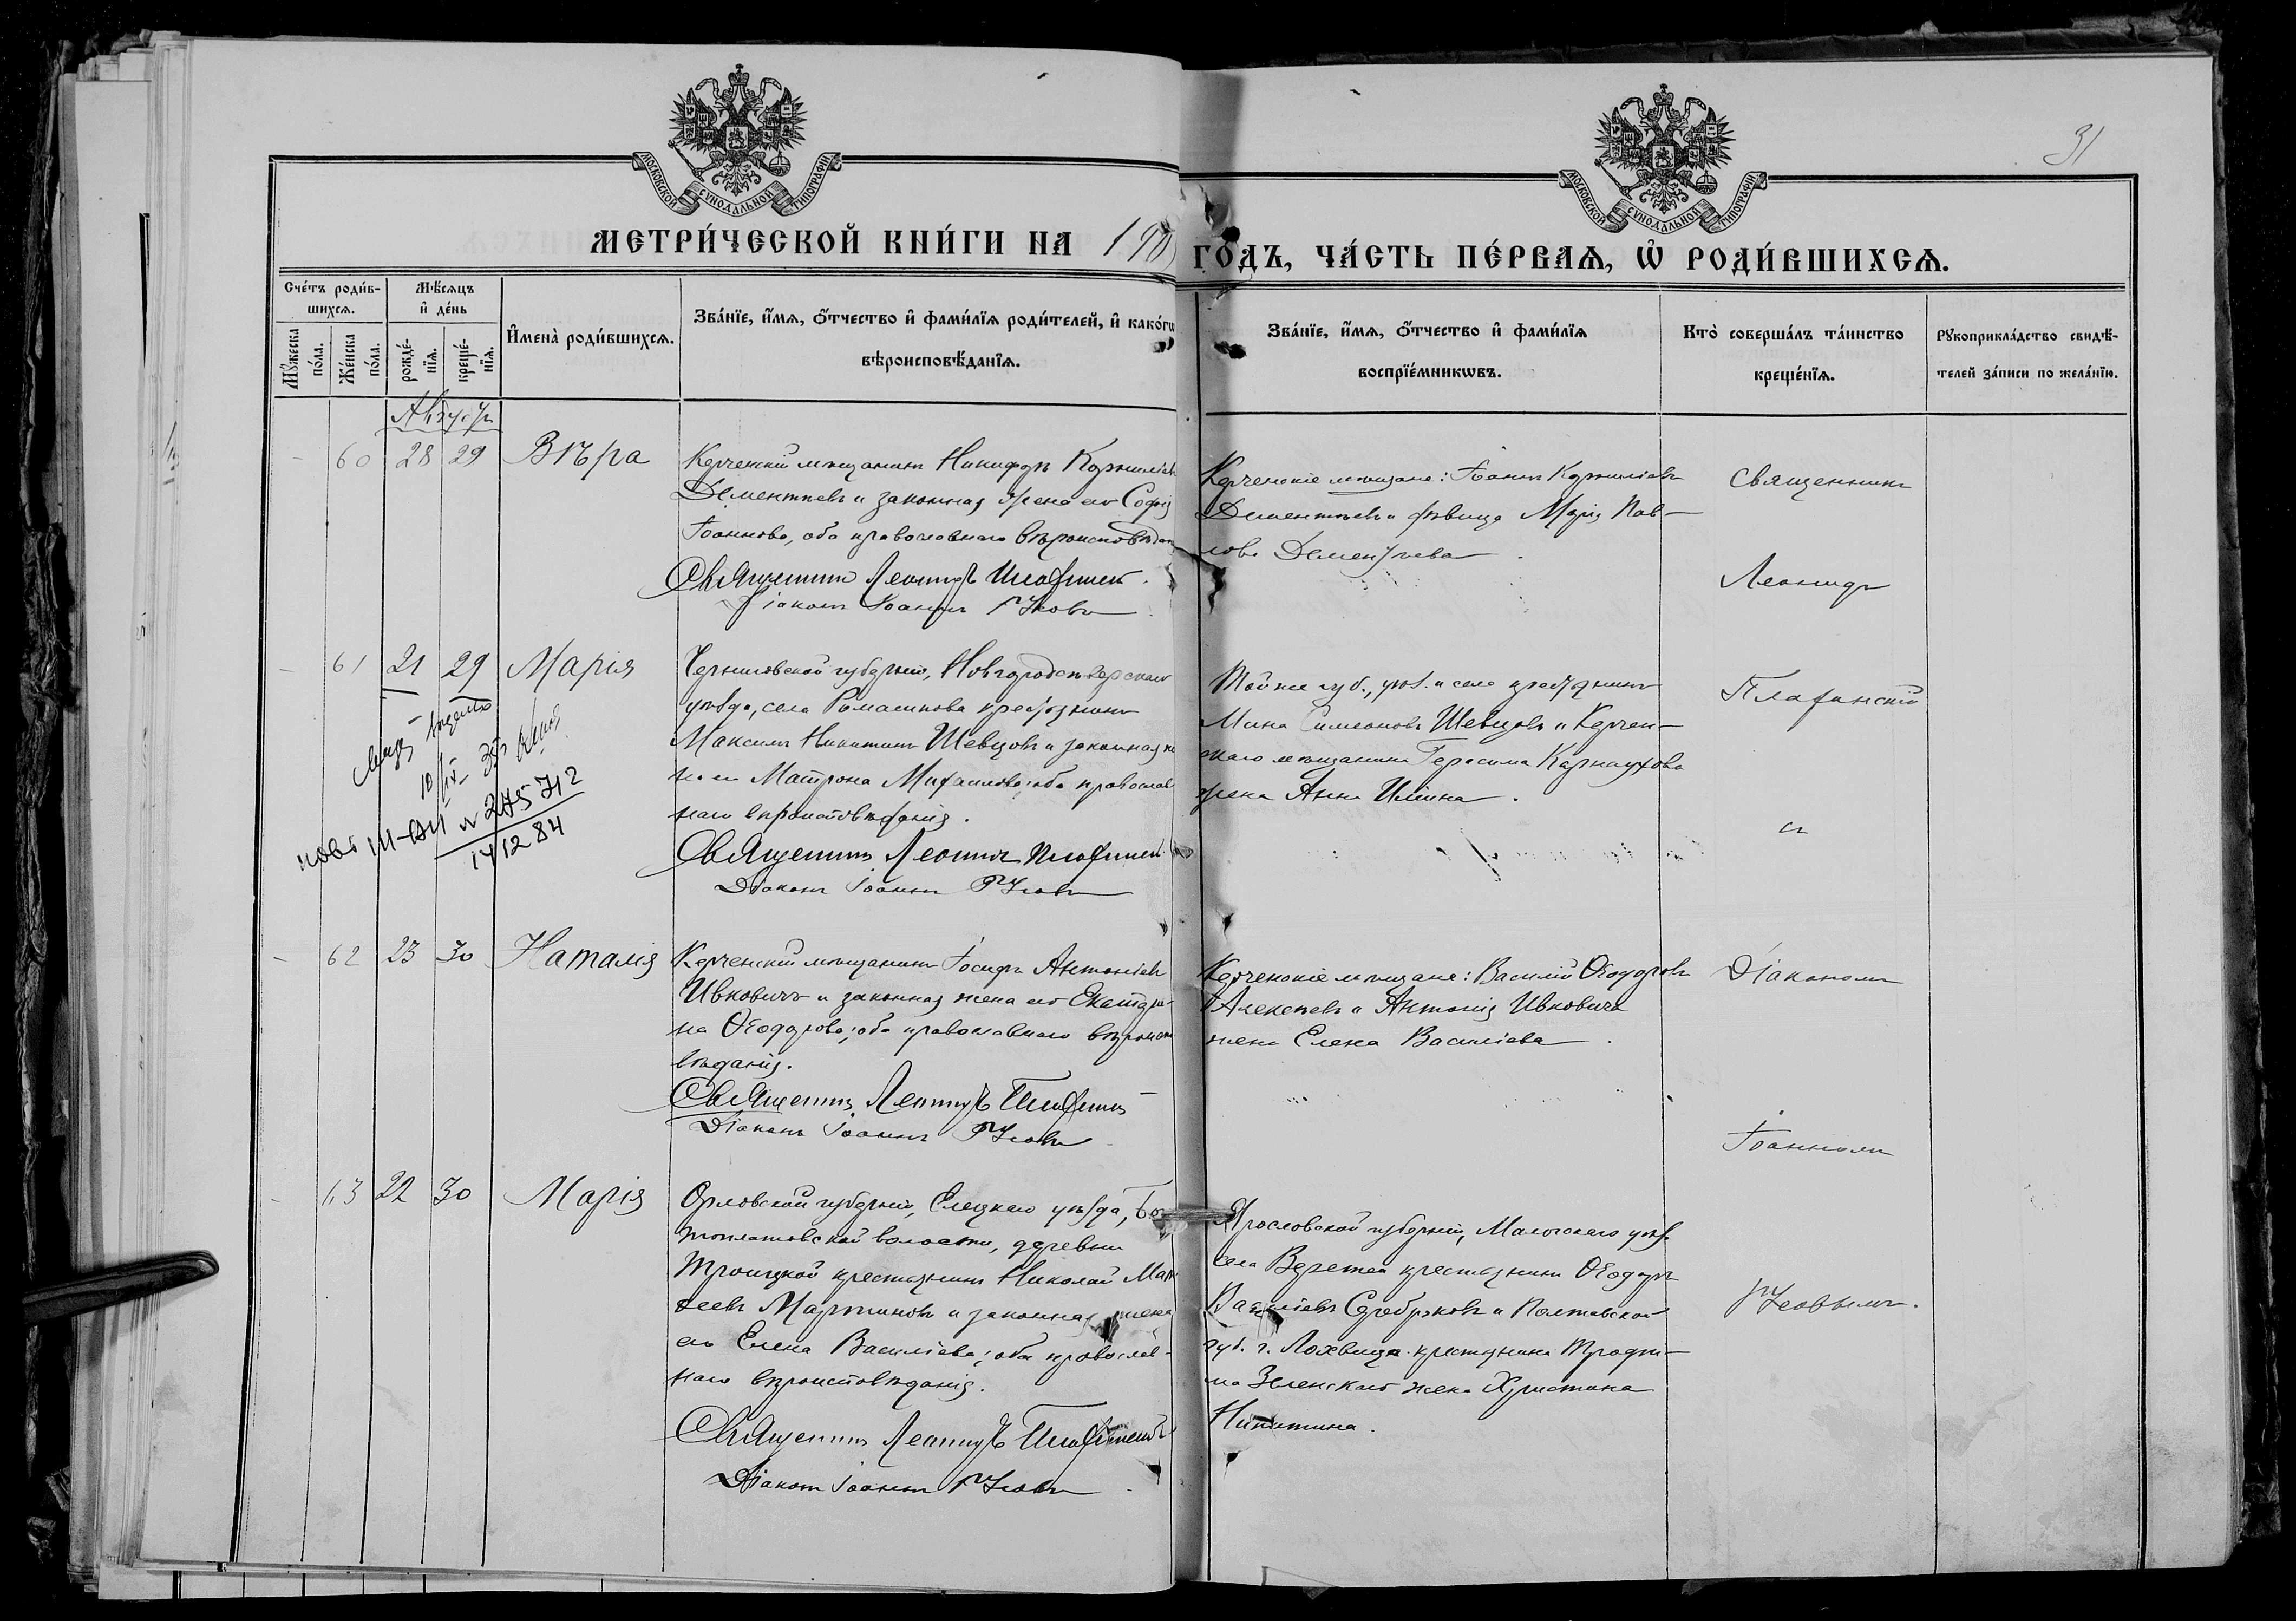 31
МОСКОВСКОЙ СѴНОДАЛЬНОЙ ТИПОГРАФІИ
МОСКОВСКОЙ СѴНОДАЛЬНОЙ ТИПОГРАФІИ
МЕТРИ́ЧЕСКОЙ КНИ́ГИ НА 190 ГО́ДЪ, ЧА́СТЬ ПЕ́РВАѦ, Ѡ҆ РОДИ́ВШИХСѦ.
Сче́тъ роди́в-
шихсѧ.
Мꙋ́жеска по́ла.
Же́нска по́ла.
Мѣ́сѧцъ
и҆ де́нь
рожде́-
нїѧ.
креще́-
нїѧ.
И҆мена̀ роди́вшихсѧ.
Зва́нїе, и҆́мѧ, ѻ҆́тчество и҆ фами́лїѧ роди́телей, и҆ како́гѡ
вѣроисповѣ́данїѧ.
Зва́нїе, и҆́мѧ, ѻ҆́тчество и҆ фами́лїѧ
воспрїе́мникѡвъ.
Кто̀ соверша́лъ та́инство
креще́нїѧ.
Рꙋкоприкла́дство свидѣ́-
телей за́писи по жела́нїю.
Августъ
- 60 28 29 Вѣра
Керченскій мѣщанинъ Никифоръ Корниліевъ
Дементьевъ и законная жена его Софія
Іоаннова, оба православнаго вѣроисповѣдан
Священникъ Леонидъ Плаѳинскій
Діаконъ Іоаннъ
Керченскіе мѣщане: Іоаннъ Корниліевъ
Дементьевъ и дѣвица Марія Пав-
лова Дементьева
Священникъ
Леонидъ
- 61 21 29 Марія
Черниговской губерніи, Новгородсѣверскаго
уѣзда, села Ромашкова крестьянинъ
Максимъ Никитинъ Шевцовъ и законная же
на его Матрона Михаилова; оба православ
наго вѣроисповѣданія.
Священникъ Леонидъ Плаѳинскій
Діаконъ Іоаннъ
Той же губ., уѣз. и села крестьянинъ
Мина Симеоновъ Шевцовъ и Керчен-
скаго мѣщанина Герасима Карнаухова
жена Анна Ильина.
Плаѳинскій
съ
10/IV
141284
- 62 23 30 Наталія
Керченскій мѣщанинъ Іосифъ Антоніевъ
Ивковичъ и законная жена его Екатери-
на Ѳеодорова; оба православнаго вѣроиспо
вѣданія.
Священникъ Леонидъ Плаѳинскій
Діаконъ Іоаннъ
Керченскіе мѣщане: Василій Ѳеодоровъ
Алексѣевъ и Антонія Ивковича
жена Елена Василіева
Діакономъ
Іоанномъ
- 63 22 30 Марія
Орловской губерніи, Елецкаго уѣзда, Бо
волости, деревни
Троицкой крестьянинъ Николай Мат
ѳеевъ Мартиновъ и законная жена
его Елена Василіева; оба православ-
наго вѣроисповѣданія.
Священникъ Леонидъ Плаѳинскій
Діаконъ Іоаннъ
Ярославской губерніи, Мологскаго уѣз.
села Веретеи крестьянинъ Ѳеодоръ
Василіевъ Серебряковъ и Полтавской
губ. г. Лохвицы крестьянина Трофи-
ма Зеленскаго жена Христина
Никитина.